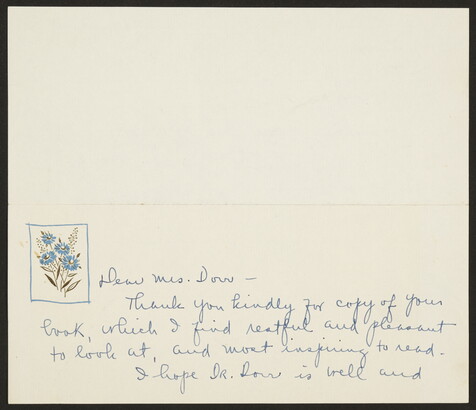 Dear Mrs. Dorr –
Thank you kindly for copy of your
book, which I find restful and pleasant
to look at, and most inspiring to read.
I hope Dr. Dorr is well and